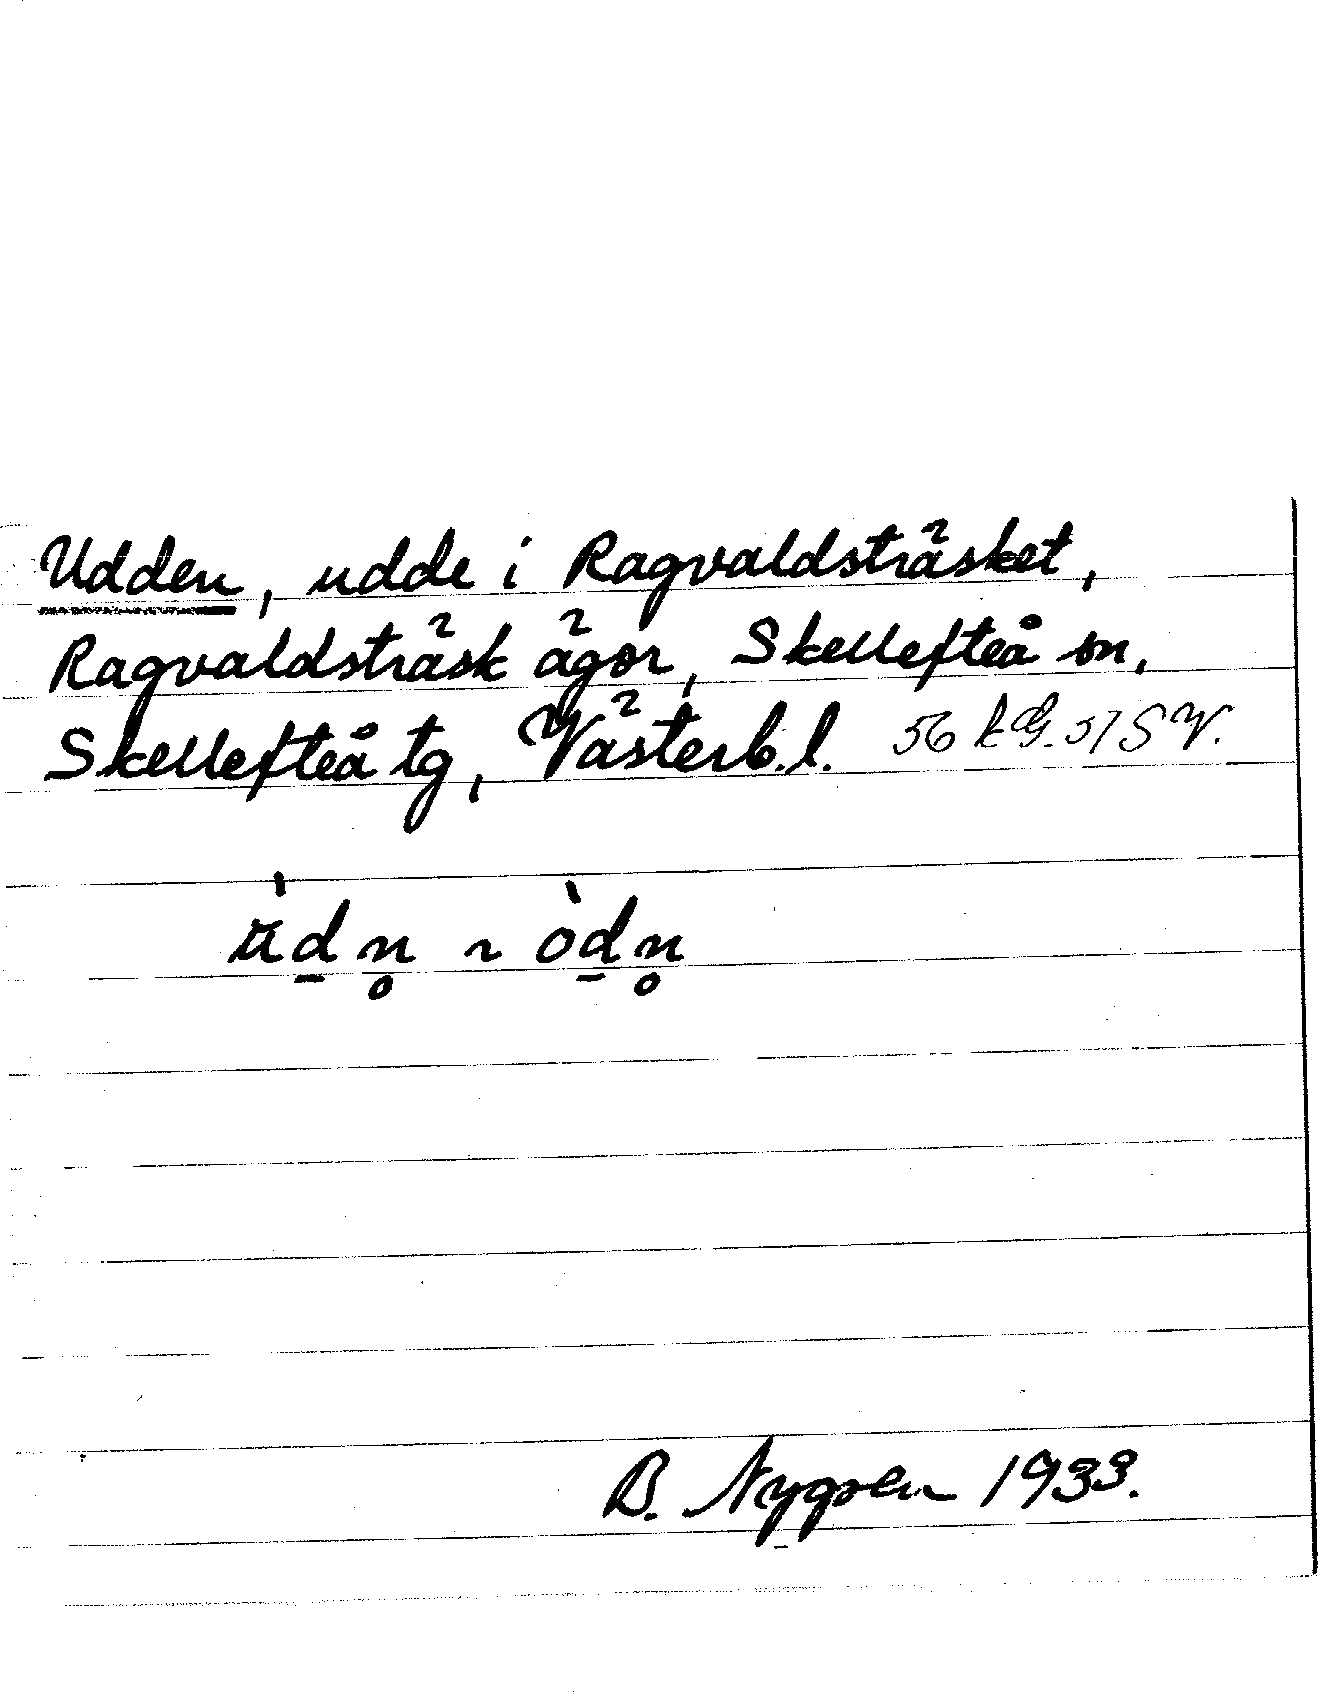 Udden, udde i Ragvaldsträsket,
Ragvaldsträsk ägor, Skellefteå sn,
Skellefteå tg, Västerb.l. 56 kG. 51 SV.
B. 1933.